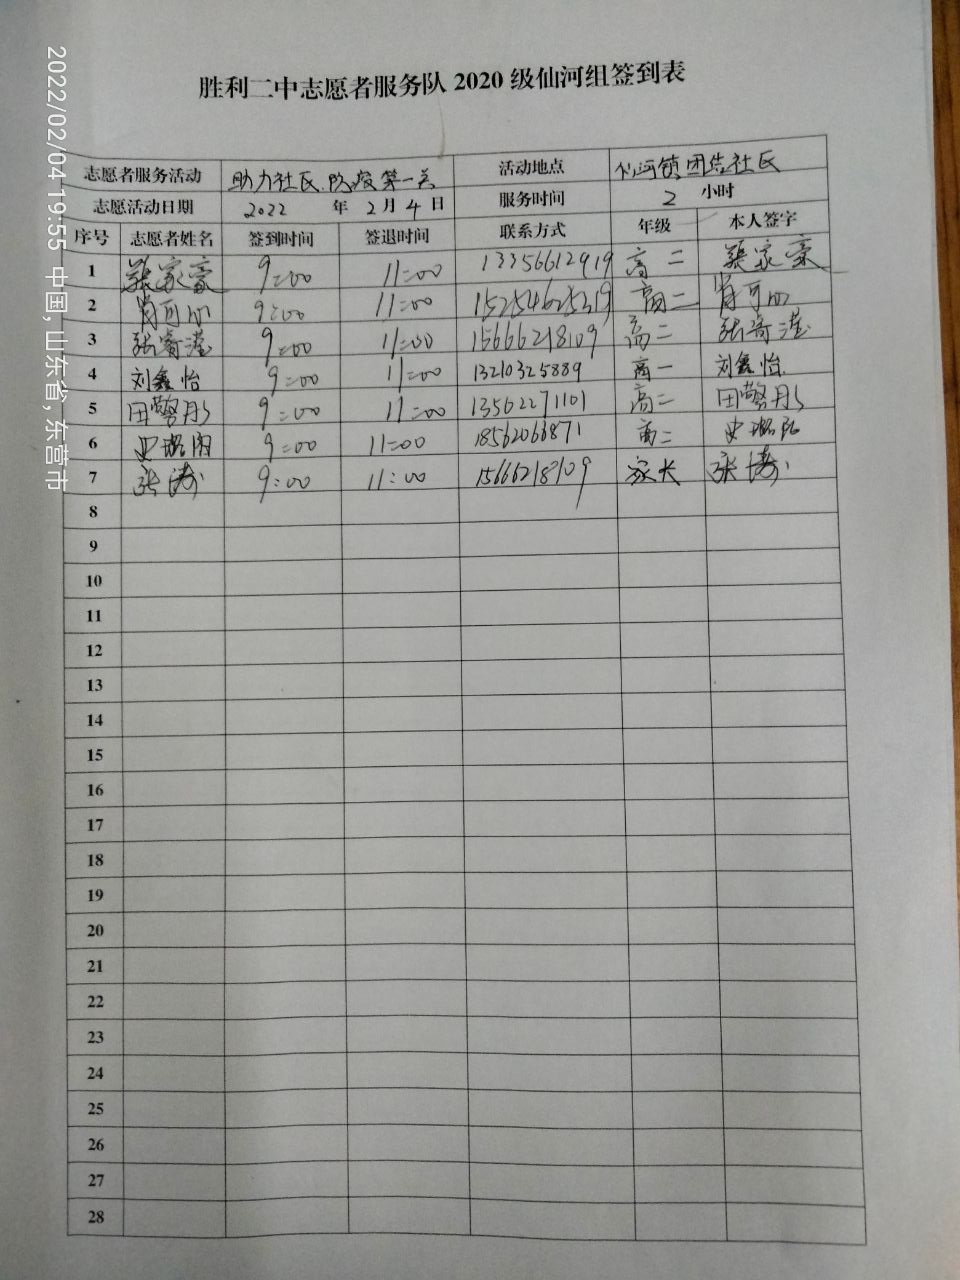 胜利二中志愿者服务队 2020 级仙河组签到表
志愿者服务活动 助力社区 防疫第一关 活动地点 仙河镇团结社区
志愿活动日期 2022 年 2 月 4 日 服务时间 2 小时
序号 志愿者姓名 签到时间 签退时间 联系方式 年级 本人签字
1 张家豪 9:00 11:00 13356612919 高二 张家豪
2 肖可 9:00 11:00 15254625219 高二 肖可
3 张 9:00 11:00 15666218109 高二 张
4 刘鑫怡 9:00 11:00 13210325889 高一 刘鑫怡
5 田 9:00 11:00 13562271101 高二 田
6 史 9:00 11:00 18562066871 高二 史
7 张涛 9:00 11:00 15666218109 家长 张涛
8
9
10
11
12
13
14
15
16
17
18
19
20
21
22
23
24
25
26
27
28
2022/02/04 19:55 中国,山东省,东营市